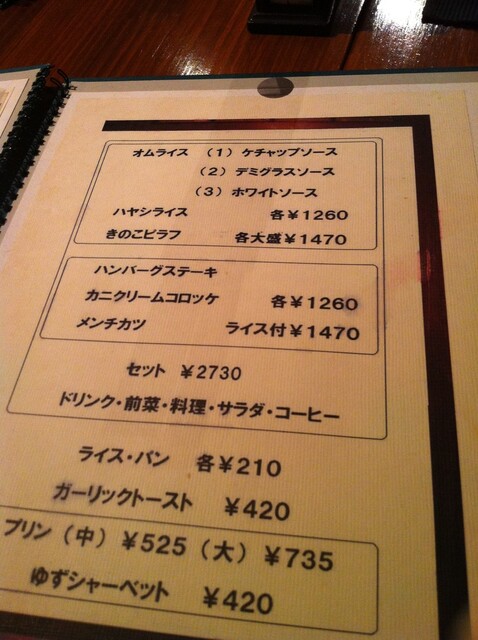 オムライス (1) ケチャップソース
(2) デミグラスソース
(3) ホワイトソース
ハヤシライス 各¥1260
きのこピラフ 各大盛¥1470
ハンバーグステーキ
カニクリームコロッケ 各¥1260
メンチカツ ライス付¥1470
セット ¥2730
ドリンク・前菜・料理・サラダ・コーヒー
ライス・パン 各¥210
ガーリックトースト ¥420
プリン(中)¥525(大)¥735
ゆずシャーベット ¥420